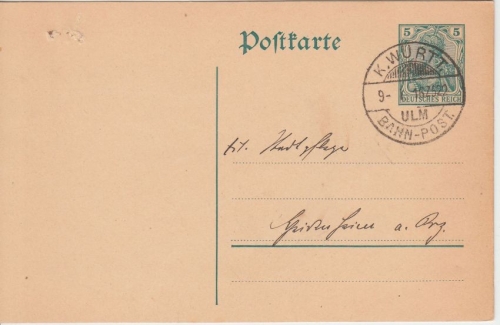 Postkarte
5 5
DEUTSCHES REICH
K. WÜRTT.
9-
ULM
BAHN-POST.
tit. Stadtpflege
a. Brz.